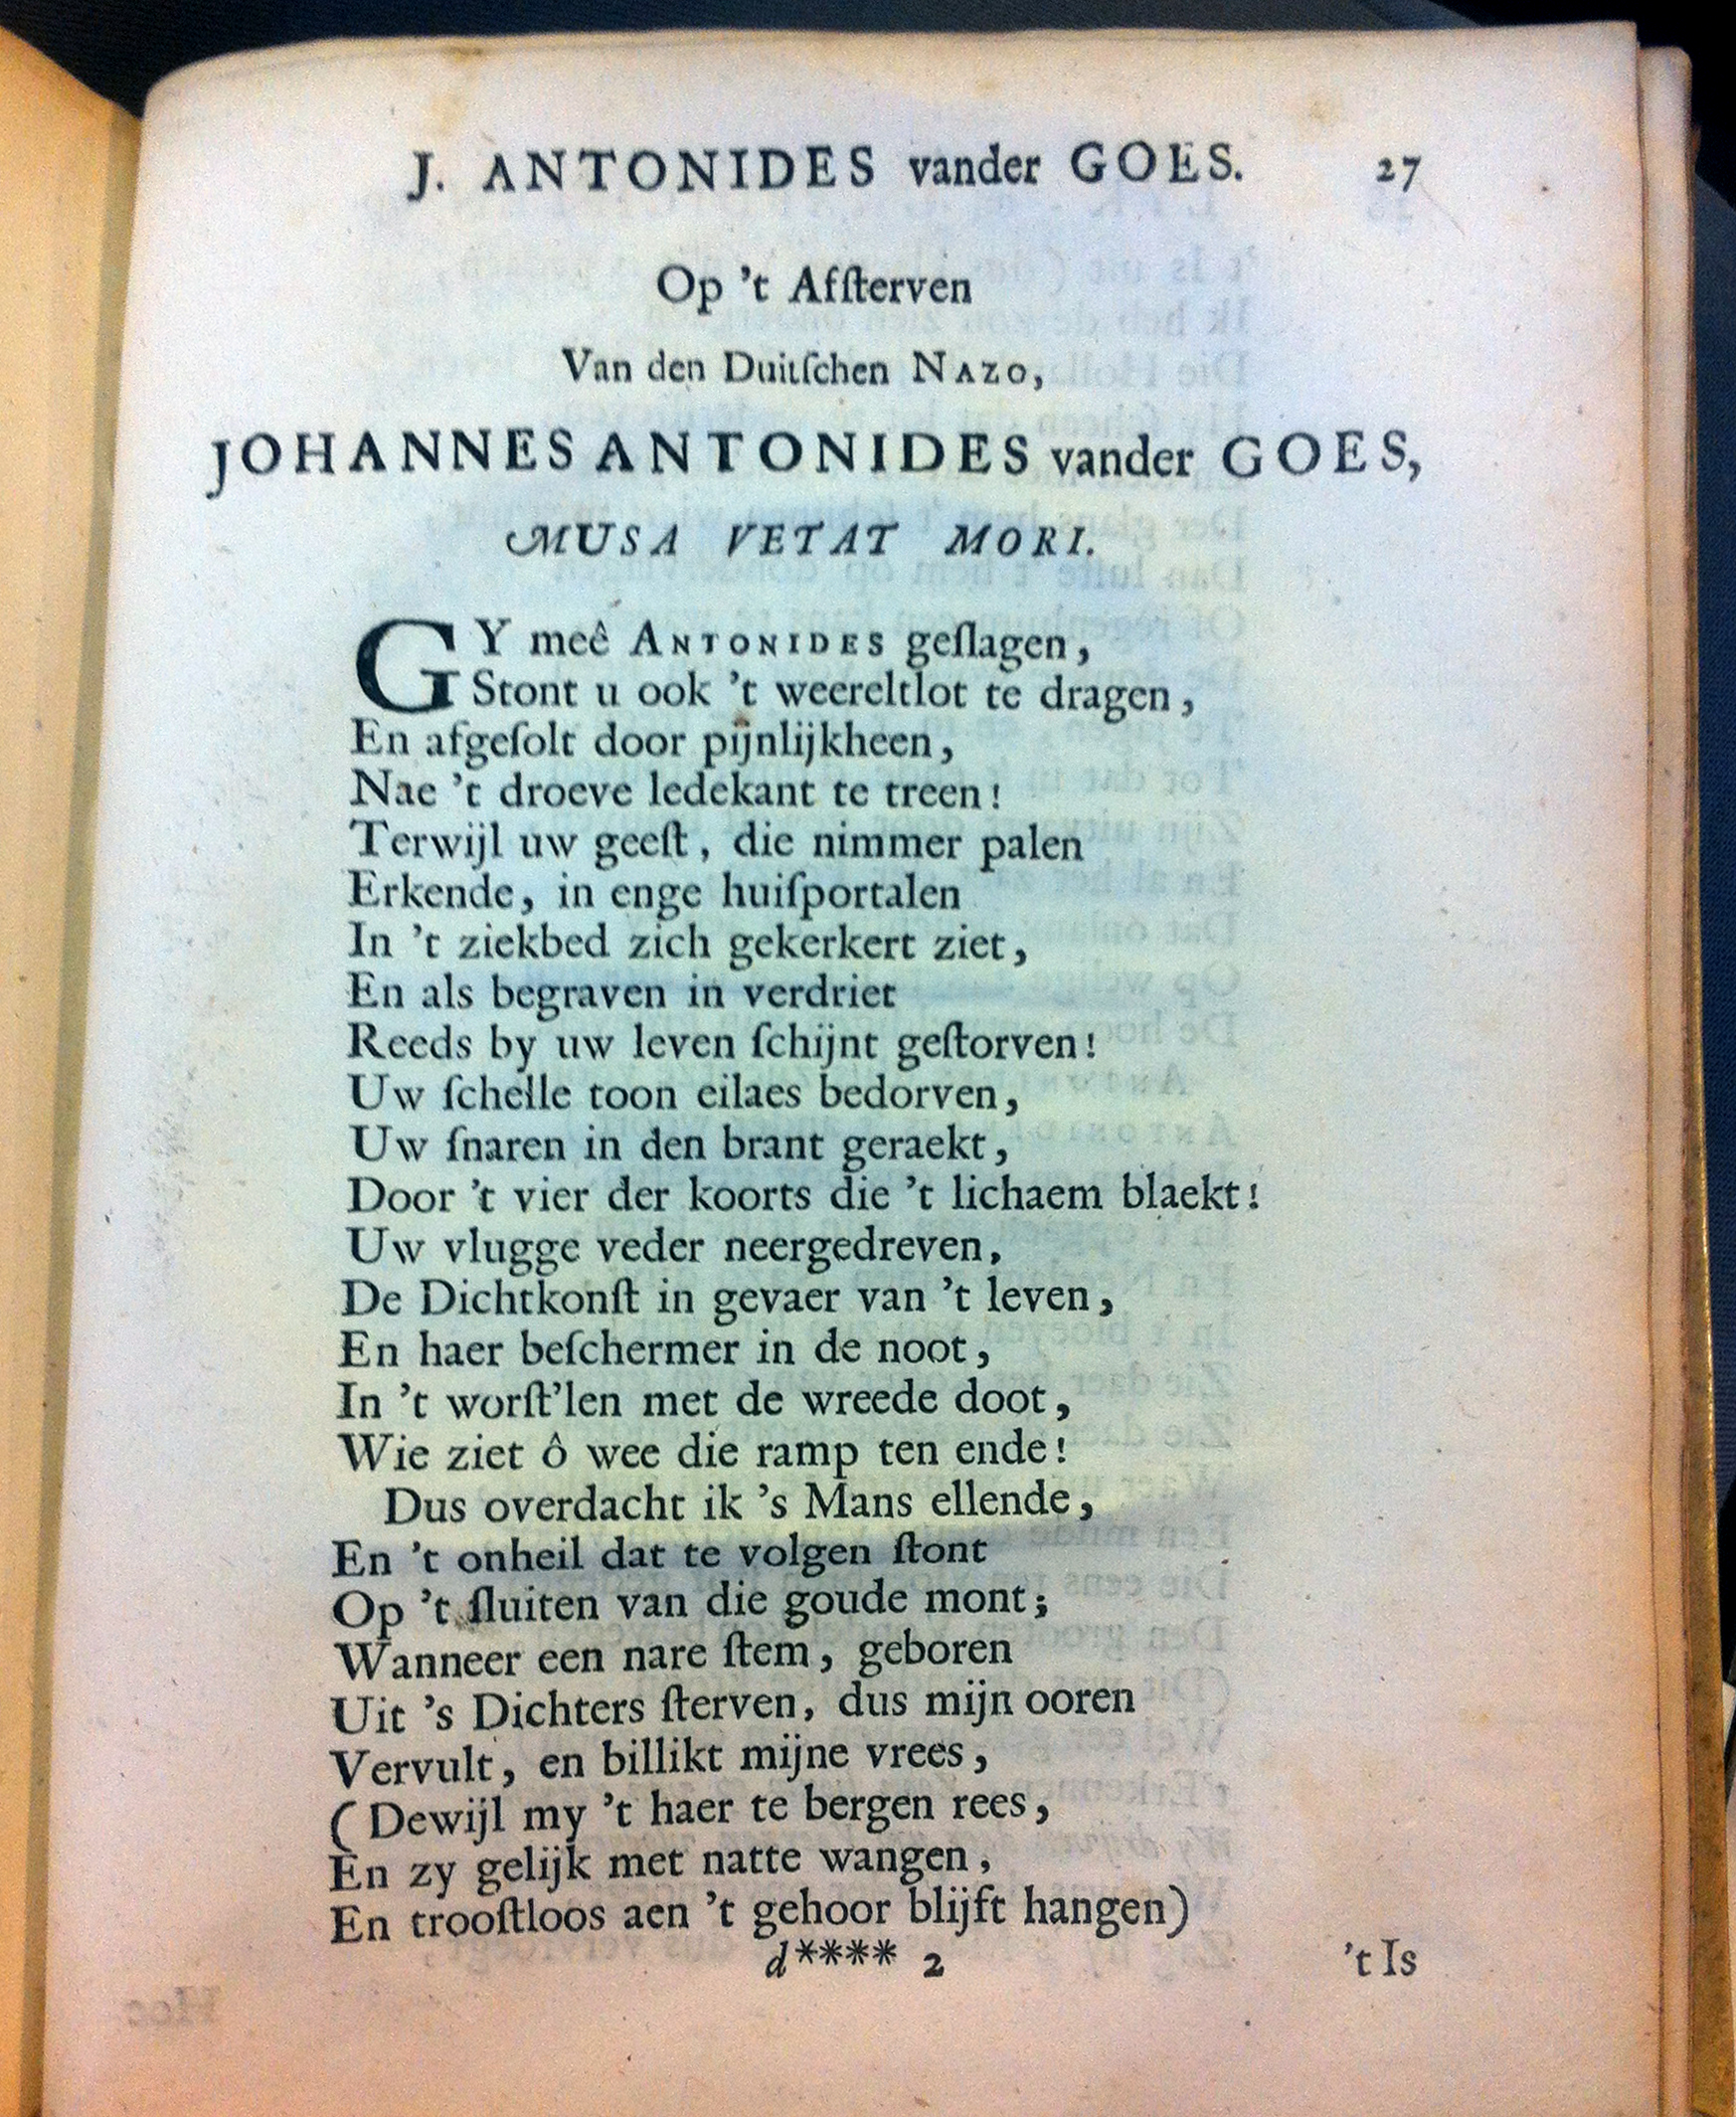 J. ANTONIDES vander GOES. 27
Op 't Afſterven
Van den Duitſchen NAZO,
JOHANNES ANTONIDES vander GOES,
MUSA VETAT MORI.
GY meê ANTONIDES geſlagen,
Stont u ook 't weereltlot te dragen,
En afgeſolt door pijnlijkheen,
Nae 't droeve ledekant te treen!
Terwijl uw geeſt, die nimmer palen
Erkende, in enge huiſportalen
In 't ziekbed zich gekerkert ziet,
En als begraven in verdriet
Reeds by uw leven ſchijnt geſtorven!
Uw ſchelle toon eilaes bedorven,
Uw ſnaren in den brant geraekt,
Door 't vier der koorts die 't lichaem blaekt!
Uw vlugge veder neergedreven,
De Dichtkonſt in gevaer van 't leven,
En haer beſchermer in de noot,
In 't worſt'len met de wreede doot,
Wie ziet ô wee die ramp ten ende!
Dus overdacht ik 's Mans ellende,
En 't onheil dat te volgen ſtont
Op 't ſluiten van die goude mont;
Wanneer een nare ſtem, geboren
Uit 's Dichters ſterven, dus mijn ooren
Vervult, en billikt mijne vrees,
(Dewijl my 't haer te bergen rees,
En zy gelijk met natte wangen,
En trooſtloos aen 't gehoor blijft hangen)
d**** 2 't Is